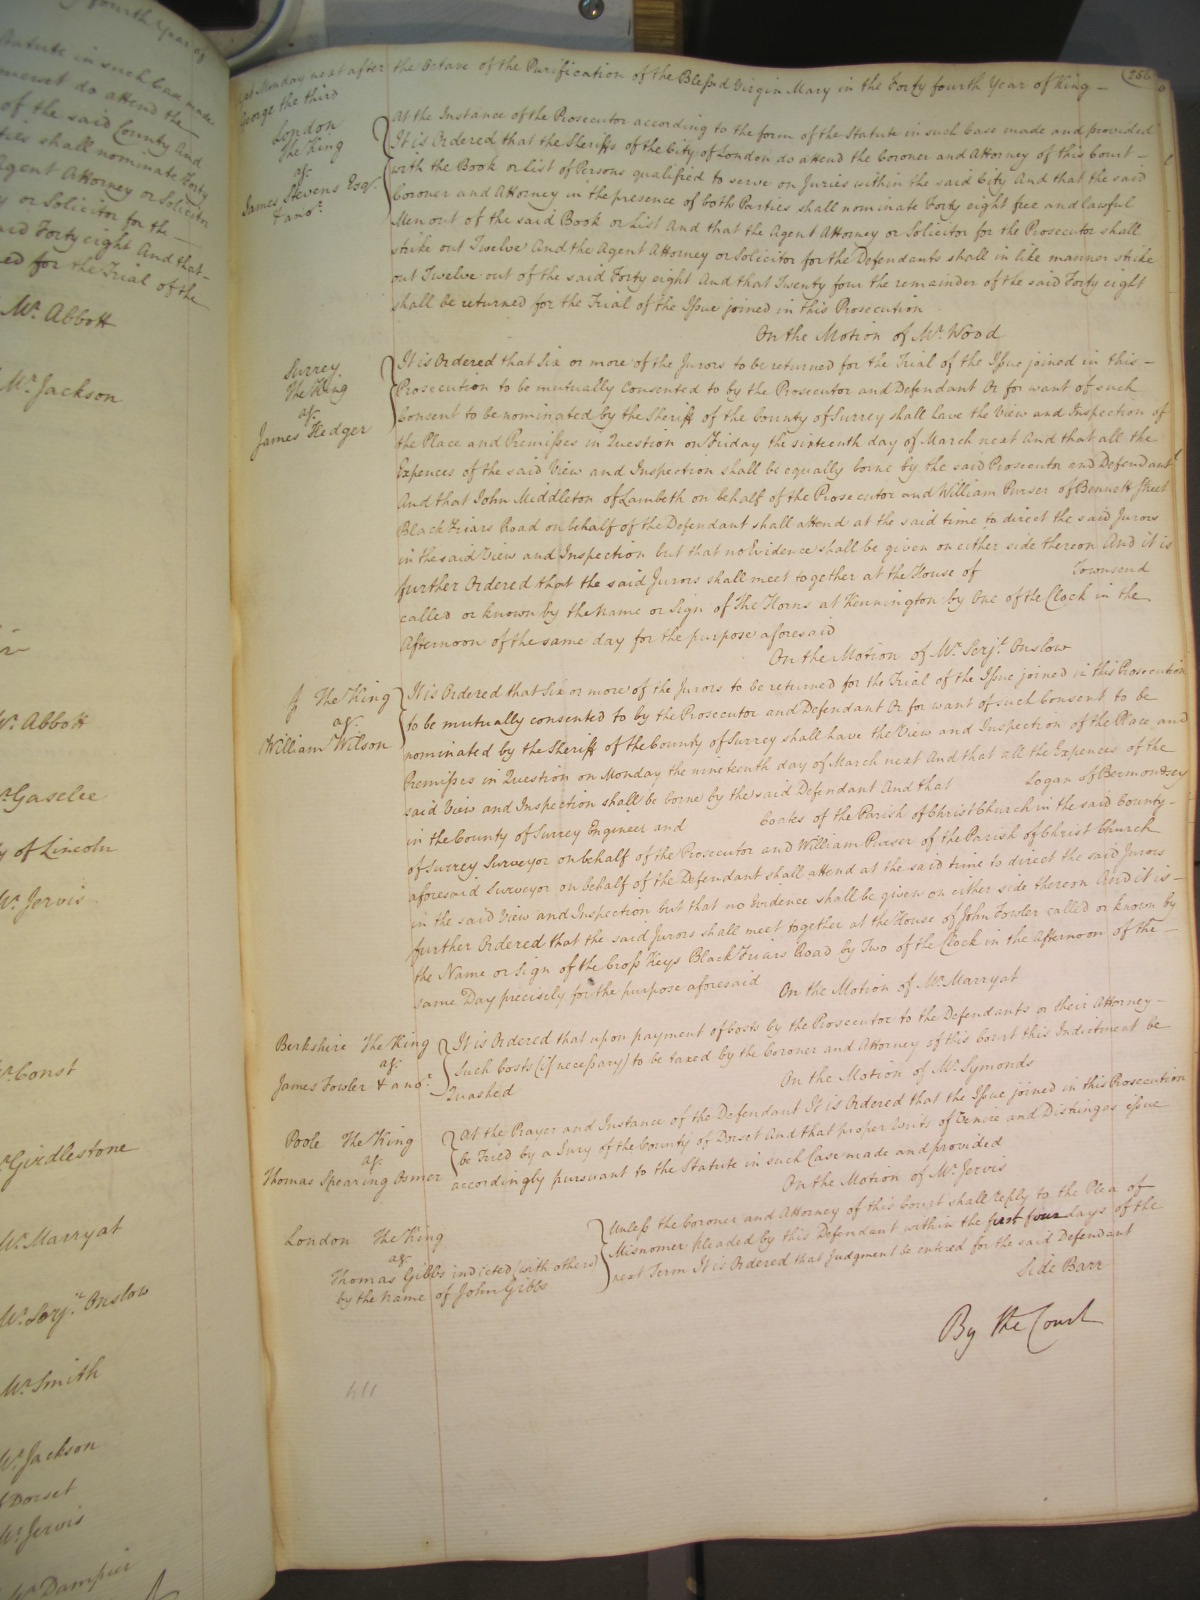 fourth Year of
Statute in such Case made
do attend the
of the said County And
ties shall nominate Forty
Agent Attorney or Solicitor
y or Solicitor for the
said Forty eight And that
ed for the Trial of the
Mr. Abbott
Mr. Jackson
Mr. Abbott
Mr. Gaselee
of Lincoln
Mr. Jervis
Mr. Const
Mr. Girdlestone
Mr. Marryat
Mr. Serjt. Onslow
Mr. Smith
Mr. Jackson
Dorset
Mr. Jervis
Mr. Dampier
256
Monday next after the Octave of the Purification of the Blessed Virgin Mary in the Forty fourth Year of King
George the third
London
The King
agt.
James Stevens Esqr.
& anor.
At the Instance of the Prosecutor according to the form of the Statute in such Case made and provided
It is Ordered that the Sheriffs of the City of London do attend the Coroner and Attorney of this Court
with the Book or List of Persons qualified to serve on Juries within the said City And that the said
Coroner and Attorney in the presence of both Parties shall nominate Forty eight free and lawful
Men out of the said Book or List And that the Agent Attorney or Solicitor for the Prosecutor shall
strike out Twelve And the Agent Attorney or Solicitor for the Defendants shall in like manner strike
out Twelve out of the said Forty eight And that Twenty four the remainder of the said Forty eight
shall be returned for the Trial of the Issue joined in this Prosecution
On the Motion of Mr. Wood
Surrey
The King
agt.
James Hedger
It is Ordered that Six or more of the Jurors to be returned for the Trial of the Issue joined in this
Prosecution to be mutually consented to by the Prosecutor and Defendant Or for want of such
Consent to be nominated by the Sheriff of the County of Surrey shall have the View and Inspection of
the Place and Premisses in Question on Friday the sixteenth day of March next And that all the
Expences of the said View and Inspection shall be equally borne by the said Prosecutor and Defendant
And that John Middleton of Lambeth on behalf of the Prosecutor and William Purser of Bennett Street
Black Friars Road on behalf of the Defendant shall attend at the said time to direct the said Jurors
in the said View and Inspection but that no Evidence shall be given on either side thereon And it is
further Ordered that the said Jurors shall meet together at the House of Townsend
called or known by the Name or Sign of The Horns at Kennington by One of the Clock in the
Afternoon of the same day for the purpose aforesaid
On the Motion of Mr. Serjt. Onslow
The King
agt.
William Wilson
It is Ordered that Six or more of the Jurors to be returned for the Trial of the Issue joined in this Prosecution
to be mutually consented to by the Prosecutor and Defendant Or for want of such Consent to be
nominated by the Sheriff of the County of Surrey shall have the View and Inspection of the Place and
Premisses in Question on Monday the nineteenth day of March next And that all the Expences of the
said View and Inspection shall be borne by the said Defendant And that Logan of Bermondsey
in the County of Surrey Engineer and Cocks of the Parish of Christ Church in the said County
of Surrey Surveyor on behalf of the Prosecutor and William Purser of the Parish of Christ Church
aforesaid Surveyor on behalf of the Defendant shall attend at the said time to direct the said Jurors
in the said View and Inspection but that no Evidence shall be given on either side thereon And it is
further Ordered that the said Jurors shall meet together at the House of John Fowler called or known by
the Name or Sign of the Cross Keys Black Friars Road by Two of the Clock in the Afternoon of the
same Day precisely for the purpose aforesaid
On the Motion of Mr. Marryat
Berkshire The King
agt.
James Fowler & anor.
It is Ordered that upon payment of Costs by the Prosecutor to the Defendants or their Attorney
such Costs (if necessary) to be taxed by the Coroner and Attorney of this Court this Indictment be
Quashed
On the Motion of Mr. Symonds
Poole The King
agt.
Thomas Spearing Osmer
At the Prayer and Instance of the Defendant It is Ordered that the Issue joined in this Prosecution
be Tried by a Jury of the County of Dorset And that proper Writs of Venire and Distringas issue
accordingly pursuant to the Statute in such Case made and provided
On the Motion of Mr. Jervis
London The King
agt.
Thomas Gibbs indicted (with others)
by the name of John Gibbs
Unless the Coroner and Attorney of this Court shall reply to the Plea of
Misnomer pleaded by this Defendant within the first four days of the
next Term It is Ordered that Judgment be entered for the said Defendant
Side Barr
By the Court